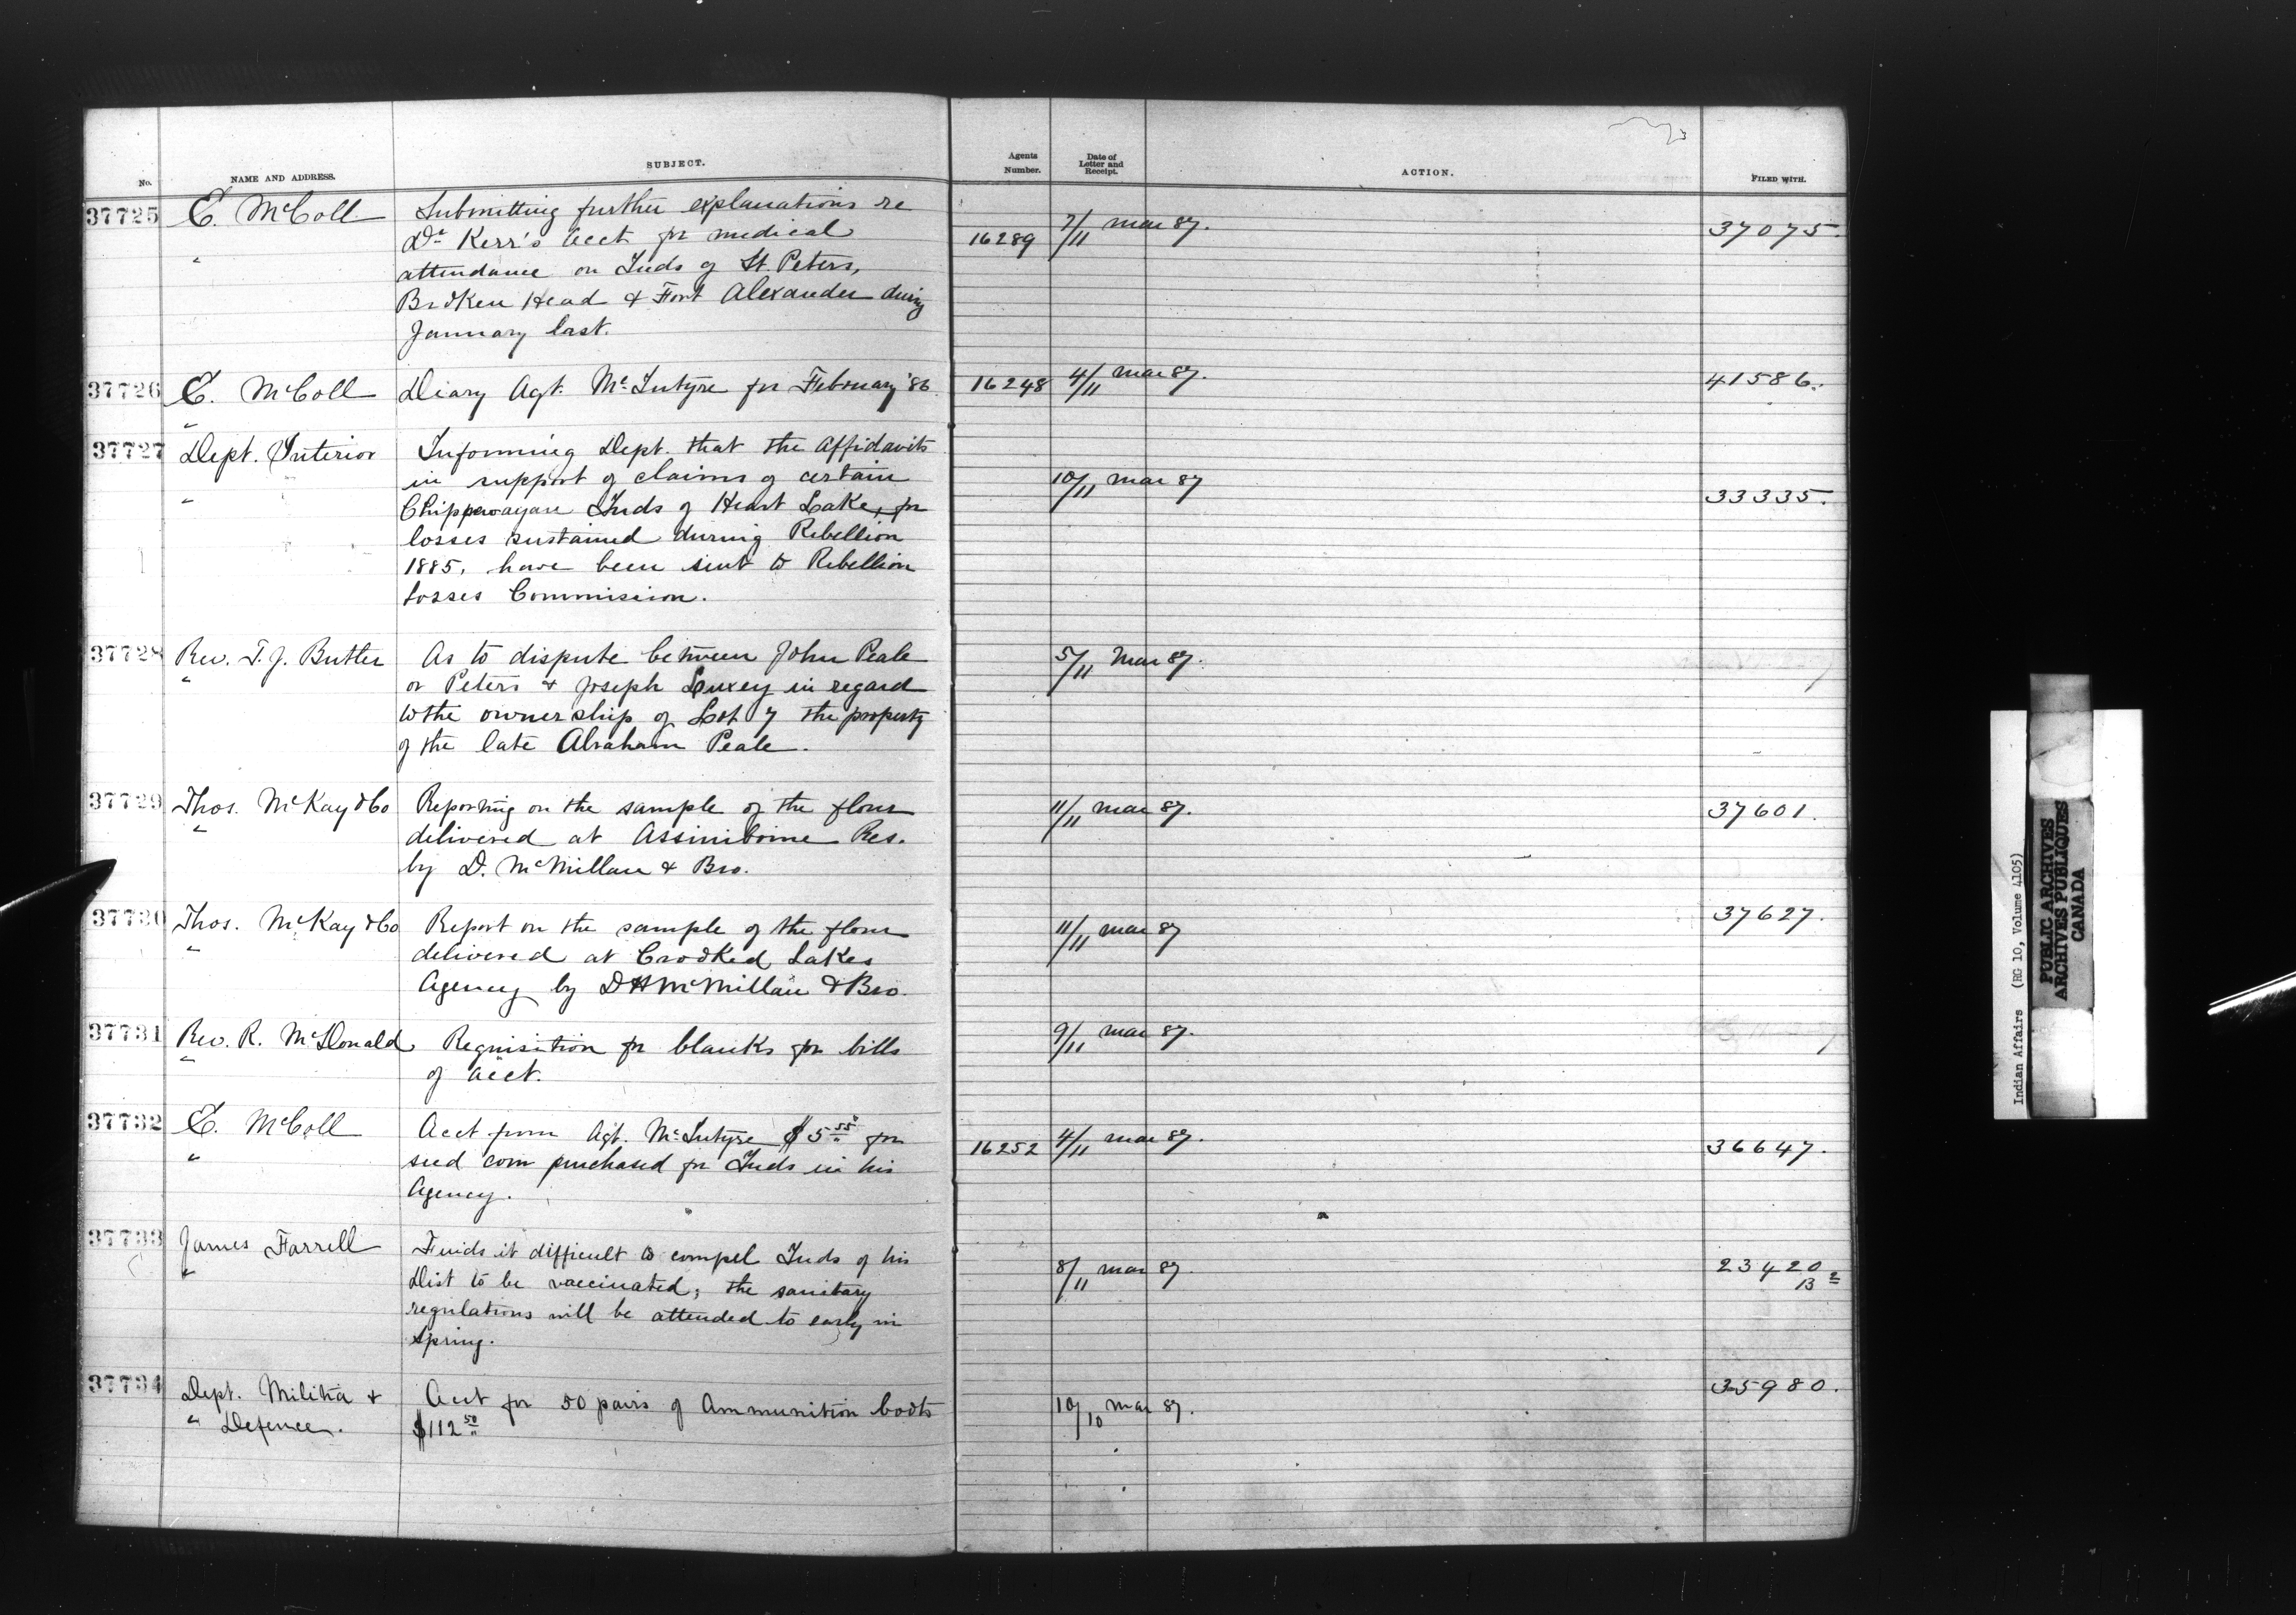 No. NAME AND ADDRESS. SUBJECT. Agents Number. Date of Letter and Receipt. ACTION. FILED WITH.
37725 E. McColl Submitting further explanations re
Dr Kerr's acct for medical 16289 7/11 mar 87. 37075.
" attendance on Inds of St. Peters,
Broken Head & Fort Alexander during
January last.
37726 E. McColl Diary Agt. McIntyre for February '86 16248 4/11 mar 87. 41586.
"
37727 Dept. Interior Informing Dept. that the affidavits
" in support of claims of certain 10/11 mar 87 33335.
Chippewayan Inds of Heart Lake, for
losses sustained during Rebellion
1885, have been sent to Rebellion
Losses Commission.
37728 Rev. T. J. Butler As to dispute between John Peale 5/11 Mar 87.
" or Peters & Joseph Luxey in regard
to the ownership of Lot 7 the property
of the late Abraham Peale.
37729 Thos. McKay & Co Reporting on the sample of the flour 11/11 mar 87. 37601.
" delivered at Assiniboine Res.
by D. McMillan & Bro.
37730 Thos. McKay & Co Report on the sample of the flour 11/11 mar 87 37627.
" delivered at Crooked Lakes
Agency by D H McMillan & Bro.
37731 Rev. R. McDonald Requisition for blanks for bills 9/11 mar 87.
" of acct.
37732 E. McColl Acct from Agt. McIntyre $5 55 for 16252 4/11 mar 87. 36647.
" seed corn purchased for Inds in his
Agency.
37733 James Farrell Finds it difficult to compel Inds of his 8/11 mar 87. 23420
" Dist to be vaccinated; the sanitary B 2
regulations will be attended to early in
Spring.
37734 Dept. Militia & Acct for 50 pairs of Ammunition boots 10/10 mar 87. 35980.
" Defence. $112 50
Indian Affairs (RG 10, Volume 4105)
PUBLIC ARCHIVES
ARCHIVES PUBLIQUES
CANADA